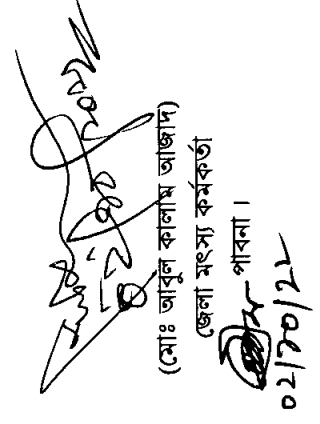 (মোঃ আবুল কালাম আজাদ)
জেলা মৎস্য কর্মকর্তা
পাবনা।
০২/১০/২২